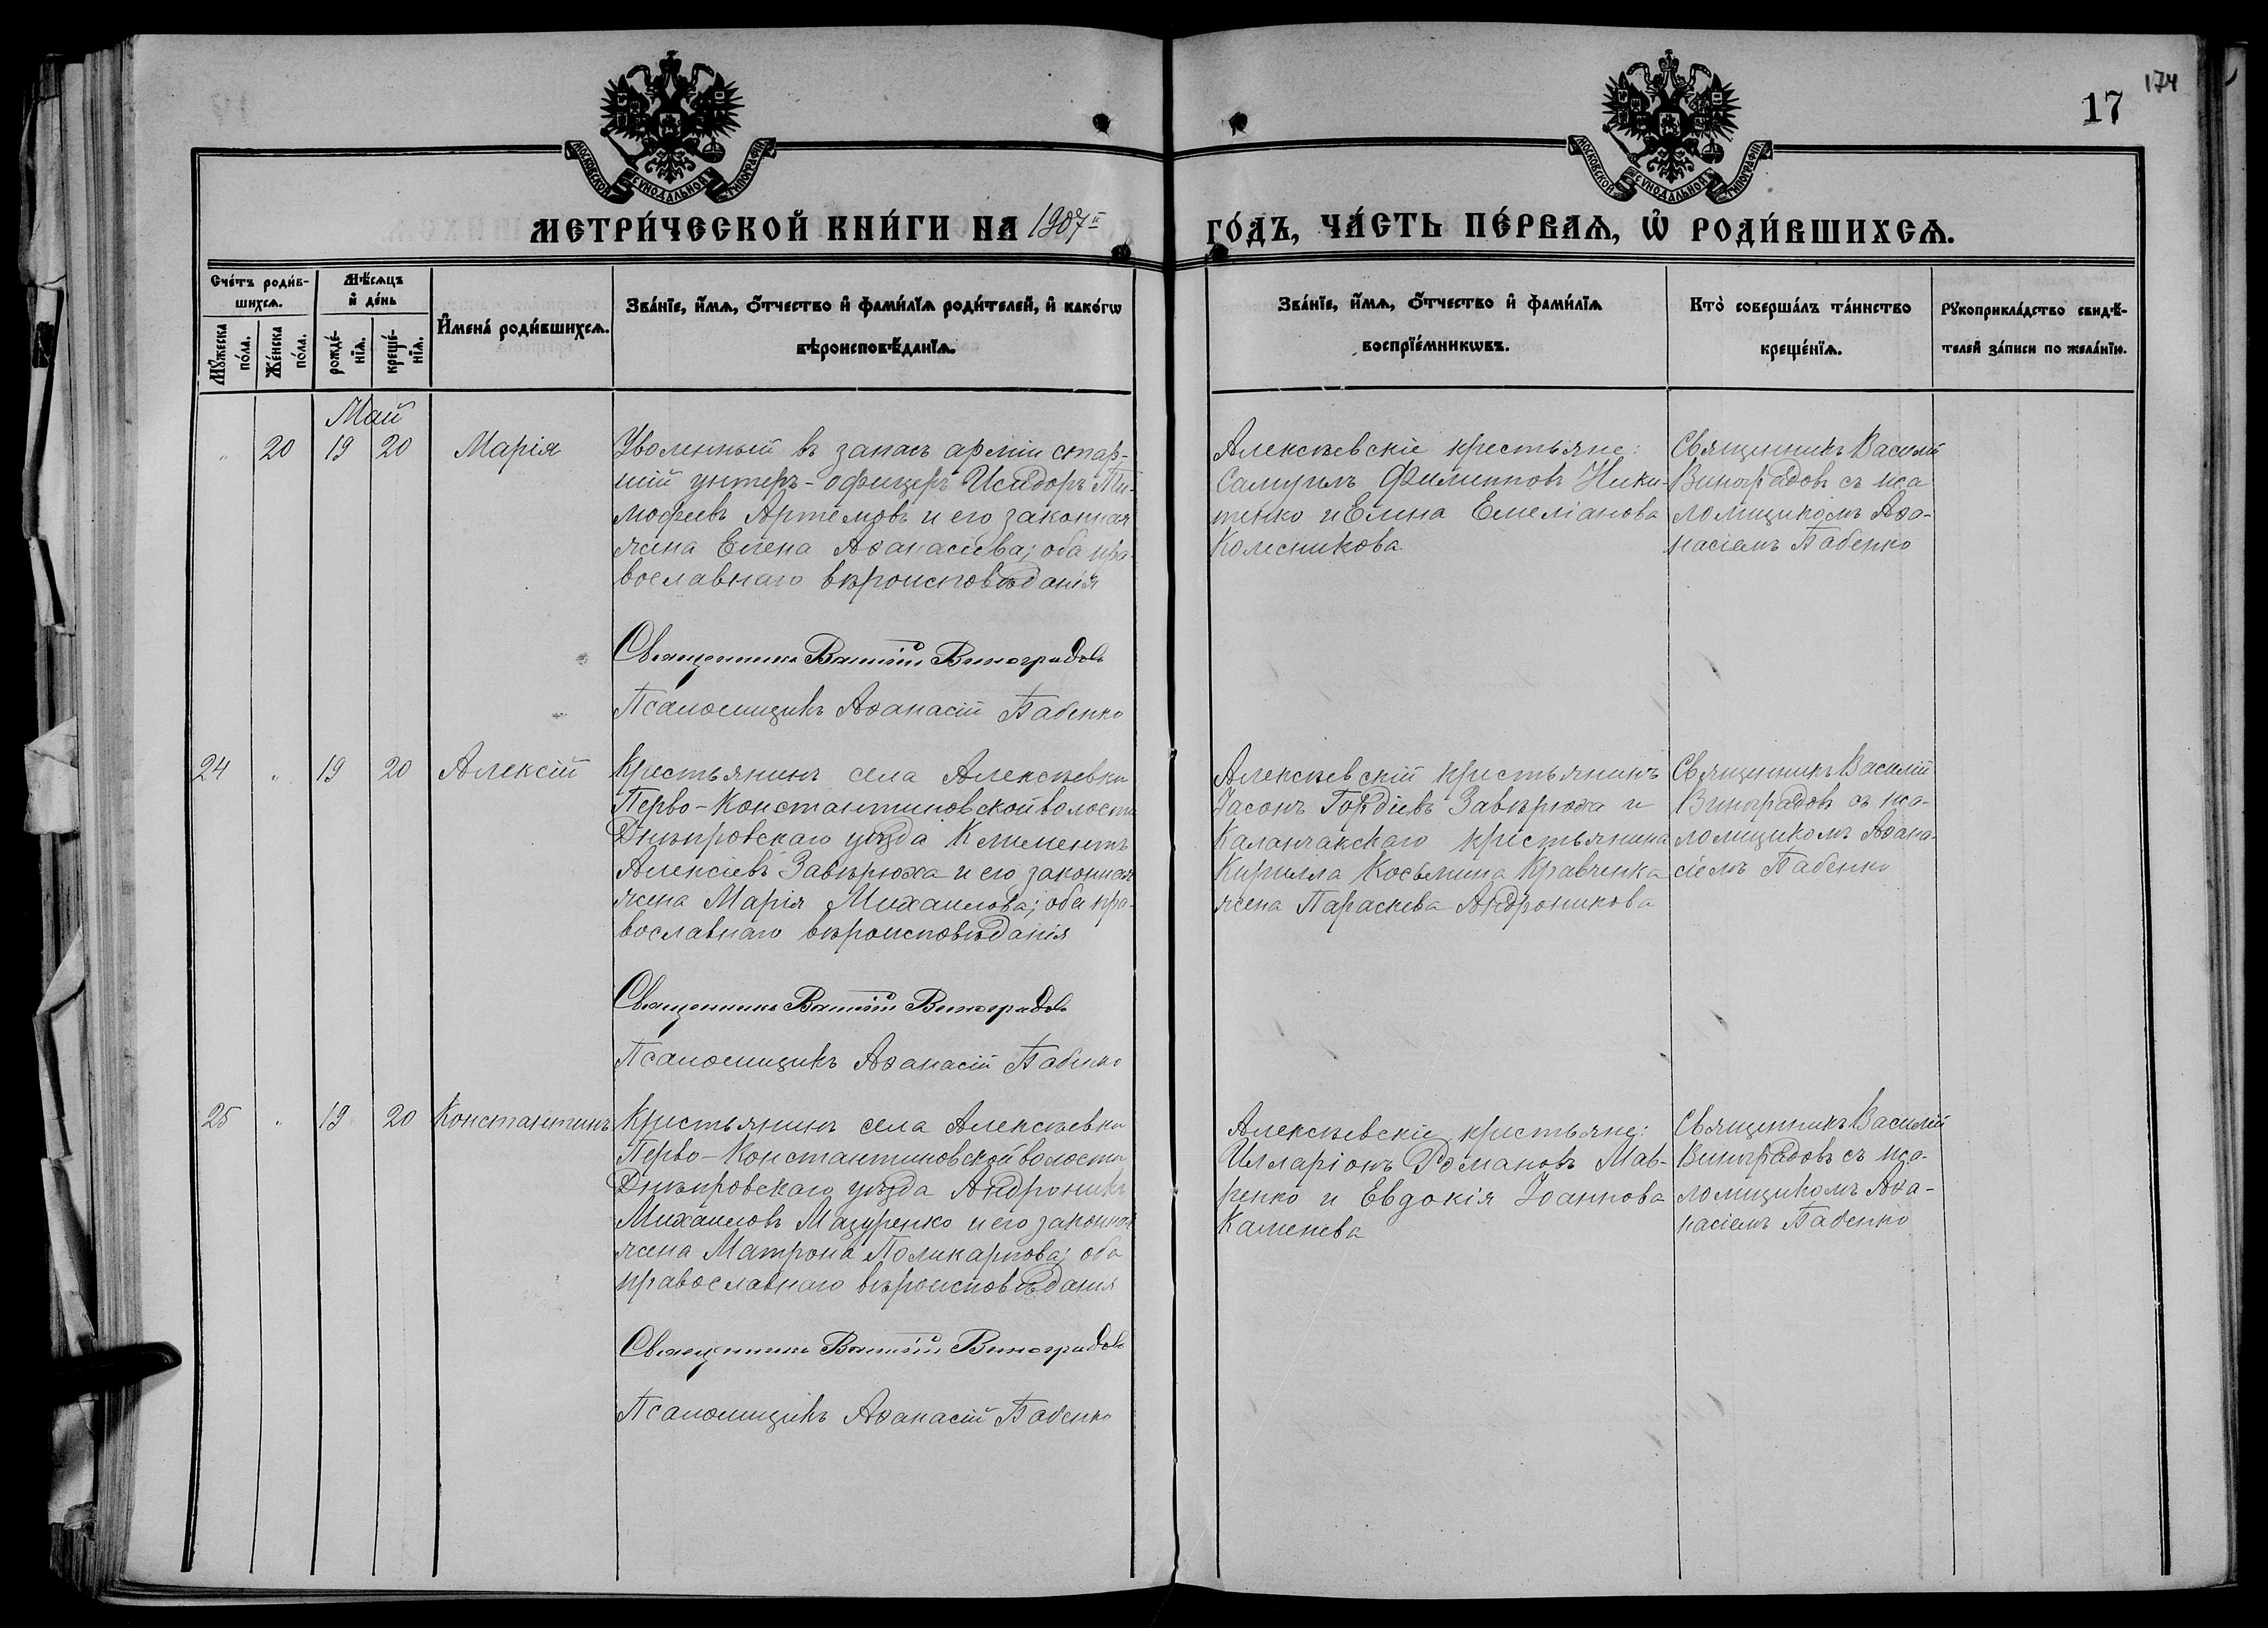 174
17
МОСКОВСКОЙ СѴНОДАЛЬНОЙ ТИПОГРАФІИ
МОСКОВСКОЙ СѴНОДАЛЬНОЙ ТИПОГРАФІИ
МЕТРИ́ЧЕСКОЙ КНИ́ГИ НА 1907й
ГО́ДЪ, ЧА́СТЬ ПЕ́РВАѦ, Ѡ҆ РОДИ́ВШИХСѦ.
Сче́тъ роди́в-
шихсѧ.
Мꙋ́жеска по́ла.
Же́нска по́ла.
Мѣ́сѧцъ
и҆ де́нь
рожде́-
нїѧ.
креще́-
нїѧ.
И҆мена́ роди́вшихсѧ.
Зва́нїе, и҆́мѧ, ѻ҆́тчество и҆ фами́лїѧ роди́телей, и҆ како́гѡ
вѣроисповѣ́данїѧ.
Зва́нїе, и҆́мѧ, ѻ҆́тчество и҆ фами́лїѧ
воспрїе́мникѡвъ.
Кто̀ соверша́лъ та́инство
креще́нїѧ.
Рꙋкоприкла́дство свидѣ́-
телей за́писи по жела́нїю.
Май
" 20 19 20 Марія
Уволенный въ запасъ арміи стар-
шій унтеръ-офицеръ Исидоръ Ти-
мофеевъ Артемовъ и его законная
жена Елена Аѳанасіева; оба пра-
вославнаго вѣроисповѣданія
Священникъ Василій Виноградовъ
Псаломщикъ Аѳанасій Бабенко
Алексѣевскіе крестьяне:
Самуилъ Филипповъ Ники-
тенко и Елена Емеліанова
Колесникова
Священникъ Василій
Виноградовъ съ пса
ломщикомъ Аѳа-
насіемъ Бабенко
24 " 19 20 Алексій
Крестьянинъ села Алексѣевки
Перво-Константиновской волости
Днѣпровскаго уѣзда Климентъ
Алексіевъ Завѣрюха и его законная
жена Марія Михаилова; оба пра-
вославнаго вѣроисповѣданія
Священникъ Василій Виноградовъ
Псаломщикъ Аѳанасій Бабенко
Алексѣевскій крестьянинъ
Іасонъ Гордіевъ Завѣрюха и
Каланчакскаго крестьянина
Кирилла Косьмина Кравченка
жена Параскева Андроникова
Священникъ Василій
Виноградовъ съ пса-
ломщикомъ Аѳана-
сіемъ Бабенко
25 " 19 20 Константинъ
Крестьянинъ села Алексѣевки
Перво-Константиновской волости
Днѣпровскаго уѣзда Андроникъ
Михаиловъ Мазуренко и его законная
жена Матрона Поликарпова; оба
православнаго вѣроисповѣданія
Священникъ Василій Виноградовъ
Псаломщикъ Аѳанасій Бабенко
Алексѣевскіе крестьяне:
Илларіонъ Романовъ Мав-
ренко и Евдокія Іоаннова
Каменева
Священникъ Василій
Виноградовъ съ пса-
ломщикомъ Аѳа-
насіемъ Бабенко